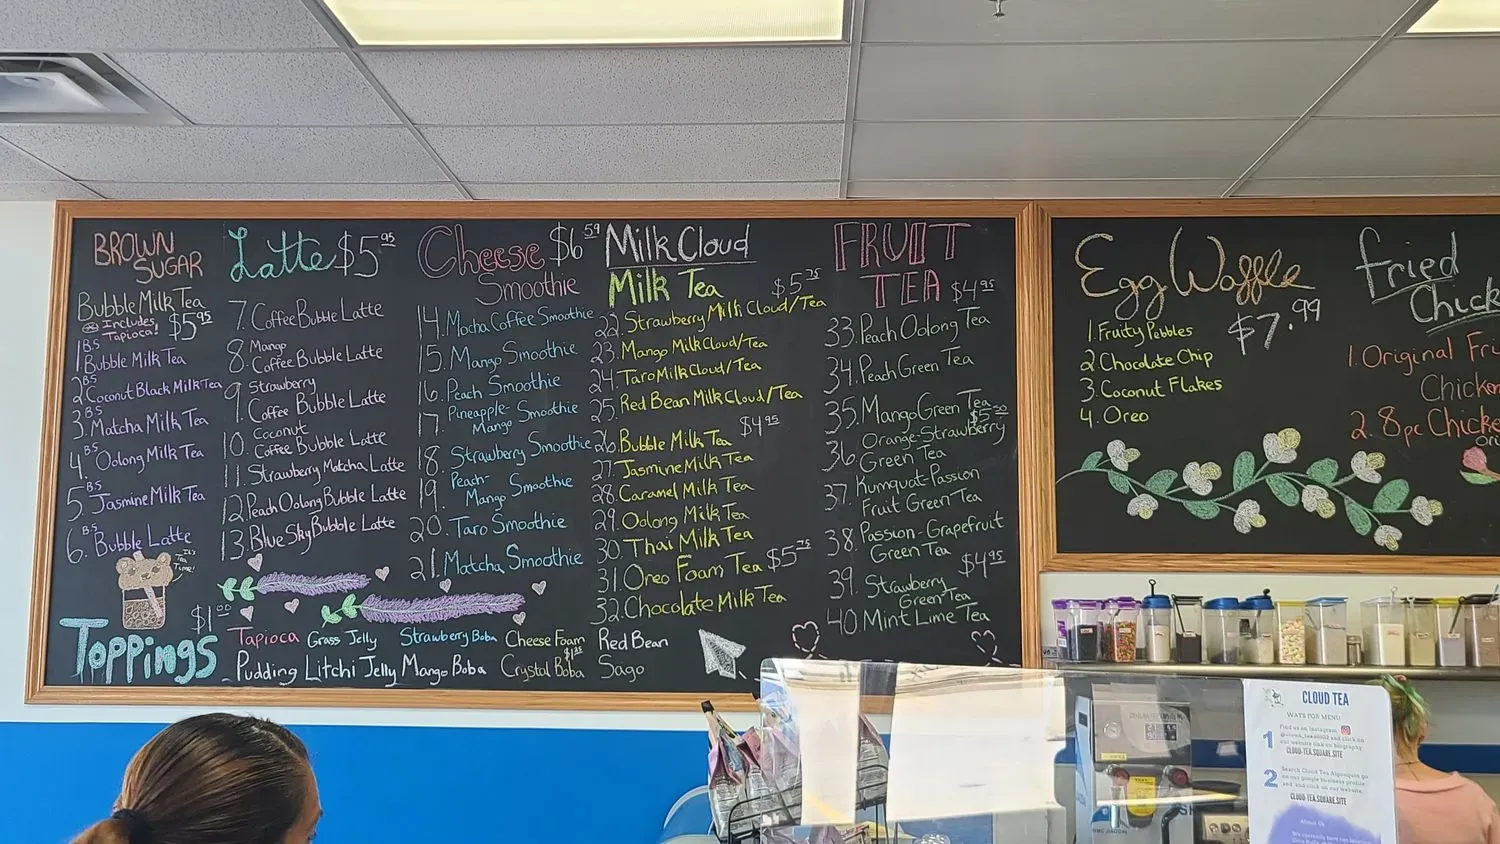 BROWN
SUGAR
Bubble Milk Tea
Includes
Tapioca! $5.95
1. B.S
Bubble Milk Tea
2. B.S
Coconut Black Milk Tea
3. B.S
Matcha Milk Tea
4. B.S
Oolong Milk Tea
5. B.S
Jasmine Milk Tea
6. B.S
Bubble Latte
It's
Tea
Time!
Latte $5.95
7. Coffee Bubble Latte
8. Mango
Coffee Bubble Latte
9. Strawberry
Coffee Bubble Latte
10. Coconut
Coffee Bubble Latte
11. Strawberry Matcha Latte
12. Peach Oolong Bubble Latte
13. Blue Sky Bubble Latte
Cheese $6.59
Smoothie
14. Mocha Coffee Smoothie
15. Mango Smoothie
16. Peach Smoothie
17. Pineapple-
Mango Smoothie
18. Strawberry Smoothie
19. Peach-
Mango Smoothie
20. Taro Smoothie
21. Matcha Smoothie
Milk Cloud
Milk Tea $5.75
22. Strawberry Milk Cloud/Tea
23. Mango Milk Cloud/Tea
24. Taro Milk Cloud/Tea
25. Red Bean Milk Cloud/Tea
26. Bubble Milk Tea $4.95
27. Jasmine Milk Tea
28. Caramel Milk Tea
29. Oolong Milk Tea
30. Thai Milk Tea
31. Oreo Foam Tea $5.75
32. Chocolate Milk Tea
FRUIT
TEA $4.95
33. Peach Oolong Tea
34. Peach Green Tea
35. Mango Green Tea
36. Orange-Strawberry
Green Tea
37. Kumquat-Passion
Fruit Green Tea
38. Passion-Grapefruit
Green Tea
39. Strawberry $4.95
Green Tea
40. Mint Lime Tea
Toppings $1.00
Tapioca Grass Jelly Strawberry Boba Cheese Foam Red Bean
Pudding Litchi Jelly Mango Boba Crystal Boba Sago
Egg Waffle
$7.99
1. Fruity Pebbles
2. Chocolate Chip
3. Coconut Flakes
4. Oreo
Fried
Chick
1. Original Fri
Chicken
2. 8pc Chicke
CLOUD TEA
WAYS FOR MENU
1
Find us on Instagram
and click on
our website link on biography
CLOUD-TEA.SQUARE.SITE
2
Search Cloud Tea Algonquin go
on our google business profile
and and click on our website.
CLOUD-TEA.SQUARE.SITE
About Us